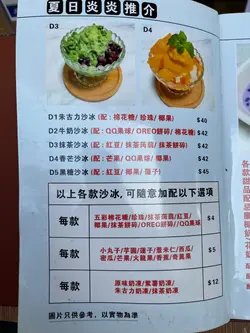 夏日炎炎推介
D3
D4
D1朱古力沙冰(配：棉花糖/珍珠/椰果) $40
D2牛奶沙冰(配：QQ果球/OREO餅碎/棉花糖) $42
D3抹茶沙冰(配：紅豆/抹茶蒟蒻/抹茶餅碎) $42
D4香芒沙冰(配：芒果/QQ果球/椰果) $42
D5黑糖沙冰(配：紅豆/椰果/蓮子) $45
以上各款沙冰，可隨意加配以下選項
每款
五彩棉花糖/珍珠/抹茶蒟蒻/紅豆/
椰果/抹茶餅碎/OREO餅碎/QQ果球
$4
每款
小丸子/芋圓/蓮子/薏米仁/西瓜/
密瓜/芒果/火龍果/香蕉/奇異果
$5
每款
原味奶凍/紫薯奶凍
朱古力奶凍/抹茶奶凍
$12
圖片只供參考，以實物為準